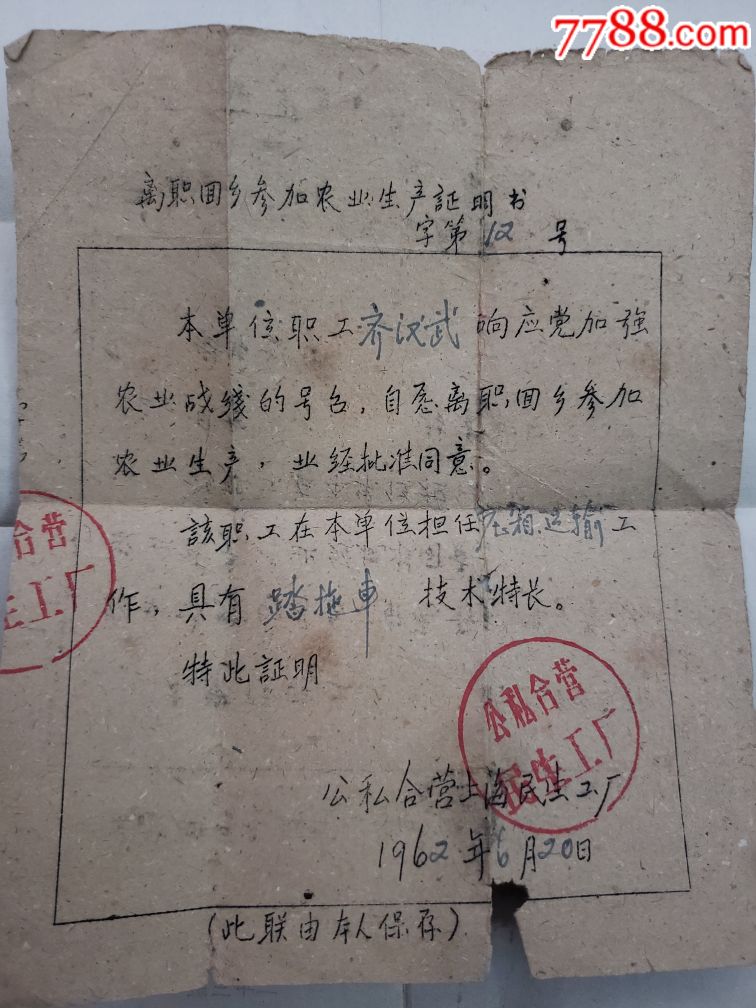 7788.com
离职回乡参加农业生产証明书
字第12号
本单位职工齐汉武响应党加强
农业战线的号召,自愿离职回乡参加
农业生产,业经批准同意。
该职工在本单位担任 运输工
作,具有踏拖車技术特长。
特此証明
公私合营上海民生工厂
1962年6月20日
(此联由本人保存)
公私合营
民生工厂
合营
生工厂